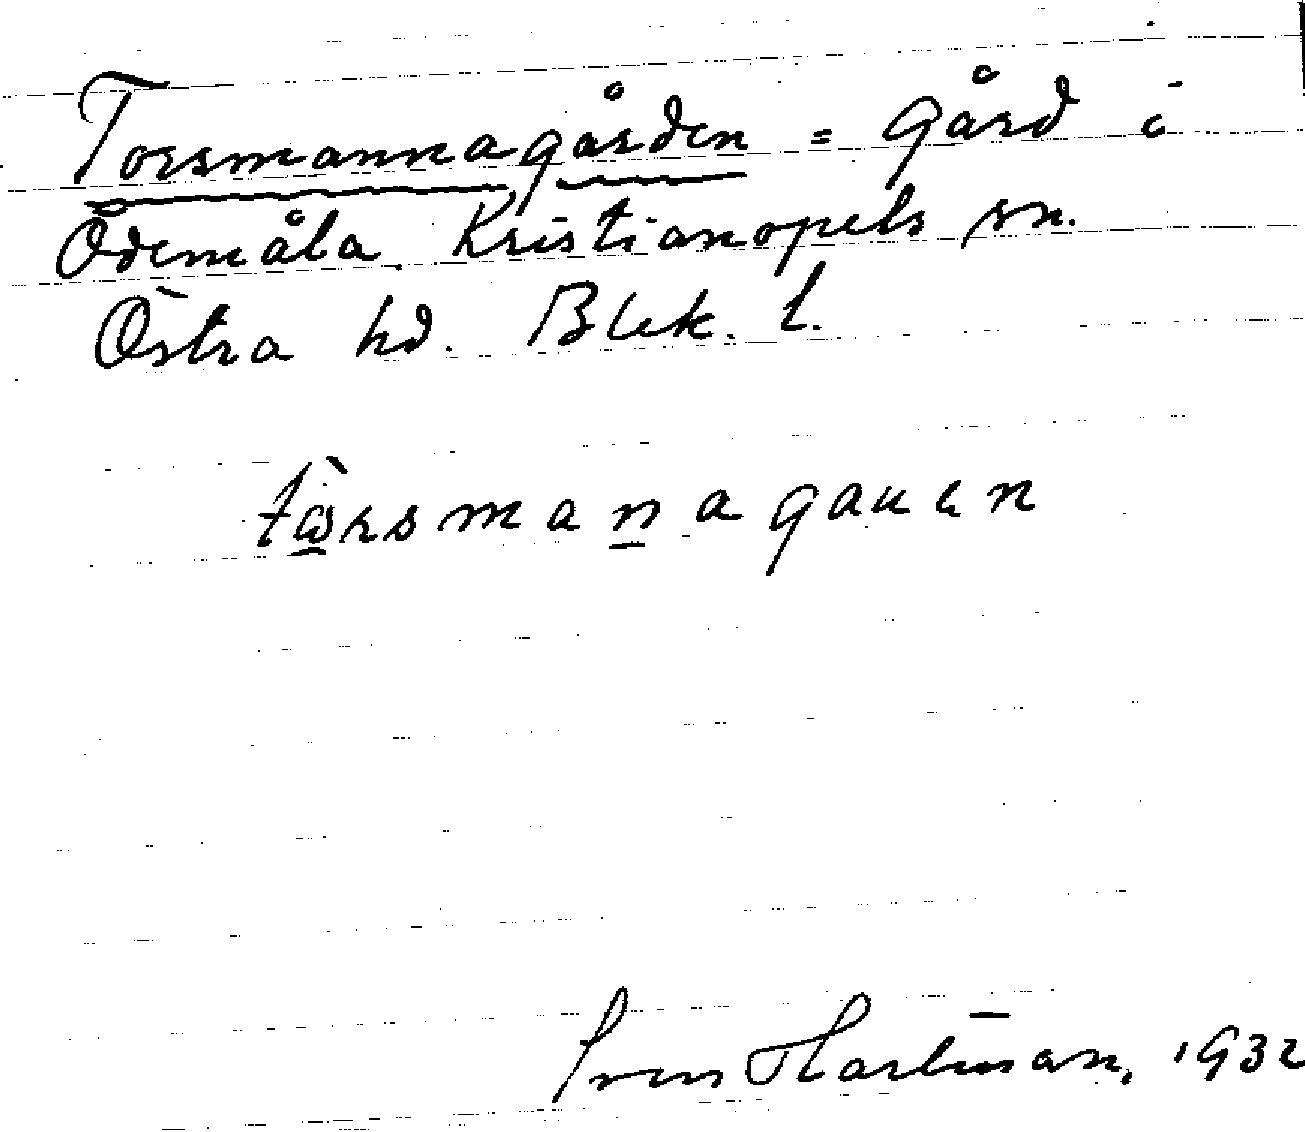 Torsmannagården = gård i
Ödemåla Kristianopels sn.
Östra hd. Blek. l.
Sven Hartman, 1932